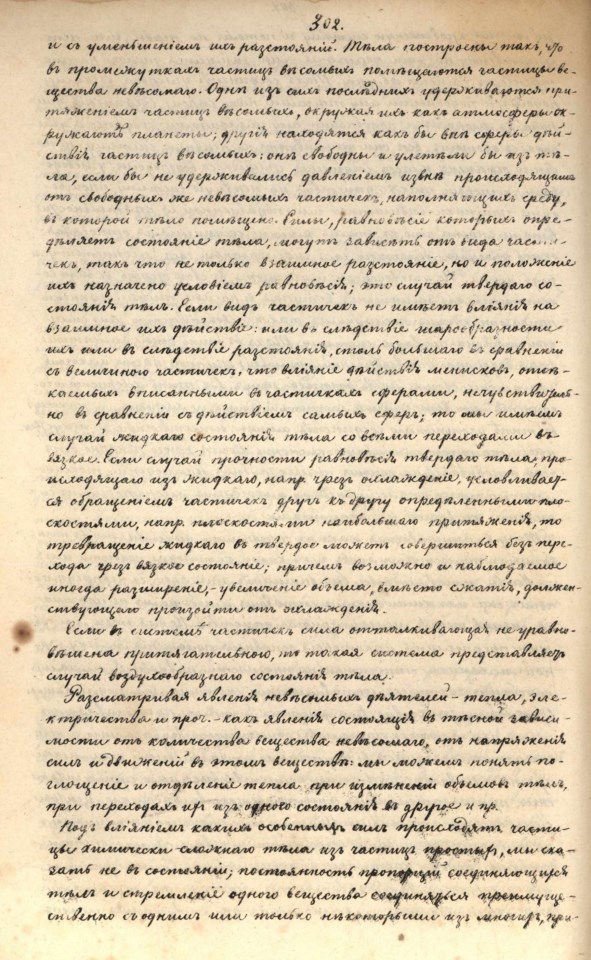 302.
и съ уменьшеніемъ ихъ разстояній. Тѣла построены такъ, что
въ промежуткахъ частицъ вѣсомыхъ помѣщаются частицы ве-
щества невѣсомаго. Однѣ изъ сихъ послѣднихъ удерживаются при-
тяженіемъ частицъ вѣсомыхъ, окружая ихъ какъ атмосферы ок-
ружаютъ планеты; другія находятся какъ бы внѣ сферы дѣй-
ствій частицъ вѣсомыхъ: онѣ свободны и улетѣли бы изъ тѣ-
ла, если бы не удерживались давленіемъ извнѣ происходящимъ
отъ свободныхъ же невѣсомыхъ частичекъ, наполняющихъ среду,
въ которой тѣло помѣщено. Силы, равновѣсіе которыхъ опре-
дѣляетъ состояніе тѣла, могутъ зависѣть отъ вида части-
чекъ, такъ что не только взаимное разстояніе, но и положеніе
ихъ назначено условіемъ равновѣсія; это случай твердаго со-
стоянія тѣлъ. Если видъ частичекъ не имѣетъ вліянія на
взаимное ихъ дѣйствіе: или въ слѣдствіе шарообразности
ихъ или въ слѣдствіе разстоянія, столь большаго въ сравненіи
съ величиною частичекъ, что вліяніе дѣйствія менисковъ, отсѣ-
каемыхъ вписанными въ частичкахъ сферами, нечувствитель-
но въ сравненіи съ дѣйствіемъ самыхъ сферъ; то мы имѣемъ
случай жидкаго состоянія тѣла со всѣми переходами въ
вязкое. Если случай прочности равновѣсія твердаго тѣла, про-
исходящаго изъ жидкаго, напр. чрезъ охлажденіе, условливает-
ся обращеніемъ частичекъ другъ къ другу опредѣленными пло-
скостями, напр. плоскостями наибольшаго притяженія, то
превращеніе жидкаго въ твердое можетъ совершиться безъ пере-
хода чрезъ вязкое состояніе; причемъ возможно и наблюдаемое
иногда расширеніе,- увеличеніе объема, вмѣсто сжатія, должен-
ствующаго произойти отъ охлажденія.
Если въ системѣ частичекъ сила отталкивающая не уравно-
вѣшена притягательною, то такая система представляетъ
случай воздухообразнаго состоянія тѣла.
Разсматривая явленія невѣсомыхъ дѣятелей - тепла, эле-
ктричества и проч. - какъ явленія состоящія въ тѣсной зависи-
мости отъ количества вещества невѣсомаго, отъ напряженія
силъ и движеній въ этомъ веществѣ: мы можемъ понять по-
глощеніе и отдѣленіе тепла при измѣненіи объемовъ тѣлъ,
при переходахъ ихъ изъ одного состоянія въ другое и пр.
Подъ вліяніемъ какихъ особенныхъ силъ происходятъ части-
цы химически сложнаго тѣла изъ частицъ простыхъ, мы ска-
зать не въ состояніи; постоянность пропорцій соединяющихся
тѣлъ и стремленіе одного вещества соединяться преимуще-
ственно съ однимъ или только нѣкоторыми изъ многихъ, при-